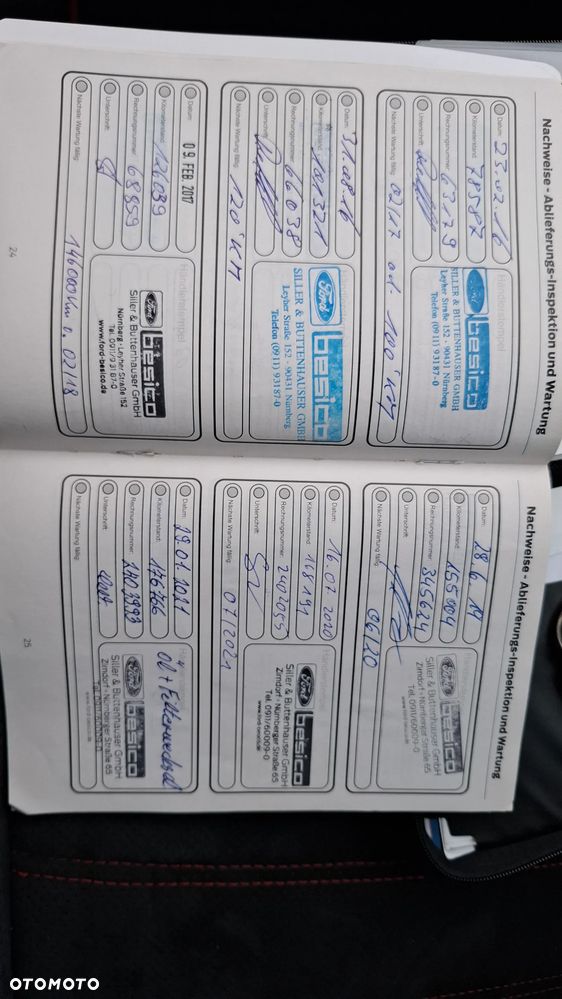 Nachweise - Ablieferungs-Inspektion und Wartung
Datum: 23.02.16
Kilometerstand: 78587
Rechnungsnummer: 63179
Unterschrift:
Nächste Wartung fällig: 02/17 od. 100' KM
Händlerstempel
Ford besico
SILLER & BUTTENHAUSER GMBH
Leyher Straße 152 - 90431 Nürnberg
Telefon (09 11) 9 31 87-0
Datum: 31.08.16
Kilometerstand: 101321
Rechnungsnummer: 66038
Unterschrift:
Nächste Wartung fällig: 120' KM
Ford besico
SILLER & BUTTENHAUSER GMBH
Leyher Straße 152 - 90431 Nürnberg
Telefon (0911) 93187-0
Datum: 09. FEB. 2017
Kilometerstand: 126039
Rechnungsnummer: 68959
Unterschrift:
Nächste Wartung fällig: 146000 Km o. 02/18
Händlerstempel
Ford besico
Siller & Buttenhauser GmbH
Nürnberg · Leyher Straße 152
Tel. 0911/9 31 87-0
www.ford-besico.de
24
Nachweise - Ablieferungs-Inspektion und Wartung
Datum: 18.6.19
Kilometerstand: 155904
Rechnungsnummer: 345624
Unterschrift:
Nächste Wartung fällig: 06/20
Ford besico
Siller & Buttenhauser GmbH
Zirndorf · Nürnberger Straße 65
Tel. 0911/60009-0
Datum: 16.07.2020
Kilometerstand: 168191
Rechnungsnummer: 2402055
Unterschrift:
Nächste Wartung fällig: 07/2021
Händlerstempel
Ford besico
Siller & Buttenhauser GmbH
Zirndorf · Nürnberger Straße 65
Tel. 0911/60009-0
www.ford-besico.de
Datum: 29.01.2021
Kilometerstand: 176766
Rechnungsnummer:
Unterschrift:
Nächste Wartung fällig:
Öl + Filterwechsel
Ford besico
Siller & Buttenhauser GmbH
Zirndorf · Nürnberger Straße 65
Tel. 0911/60009-0
25
OTOMOTO